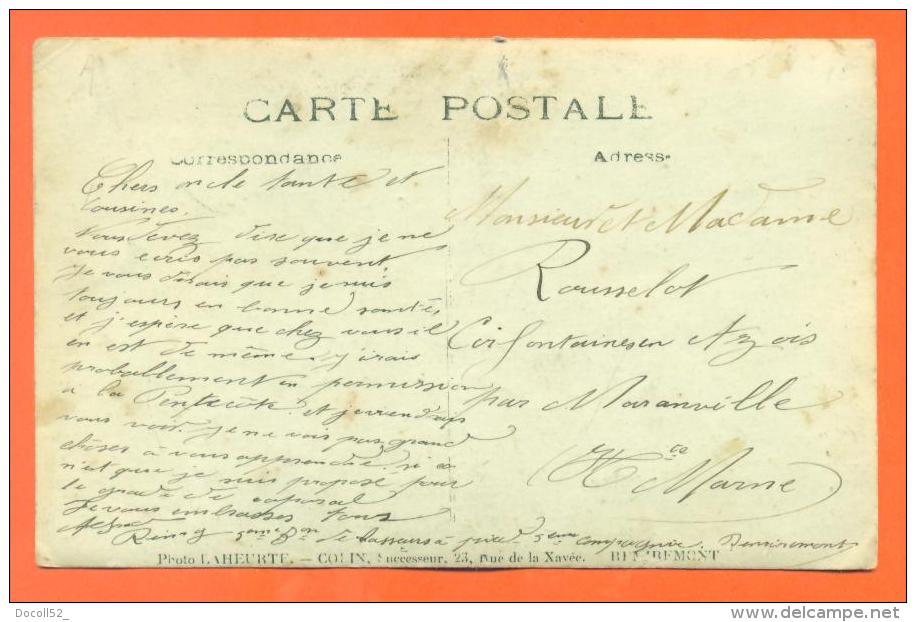 CARTE POSTALE
Correspondance
Adresse
Chers oncle tante et
Cousines.
Vous devez dire que je ne
vous ecris pas souvent
Je vous dirais que je suis
toujours en bonne santé,
et j'espère que chez vous il
en est de même. j'irais
proballement en permission
à la Pentecôte. et j'irrendrais
vous voir. je ne vois pas grand
choses à vous apprendre. si ce
n'est que je suis proposé pour
le grade de caporal
Je vous embrasses tous
Monsieur et Madame
Rousselot
Cirfontaines en Azois
par Maranville
Hte Marne
5eme Bon de chasseurs à pied 5eme compagnie. Remiremont
Photo LAHEURTE. — COLIN, Successeur, 23, Rue de la Xavée. REMIREMONT
Docoll52_
www.delcampe.net